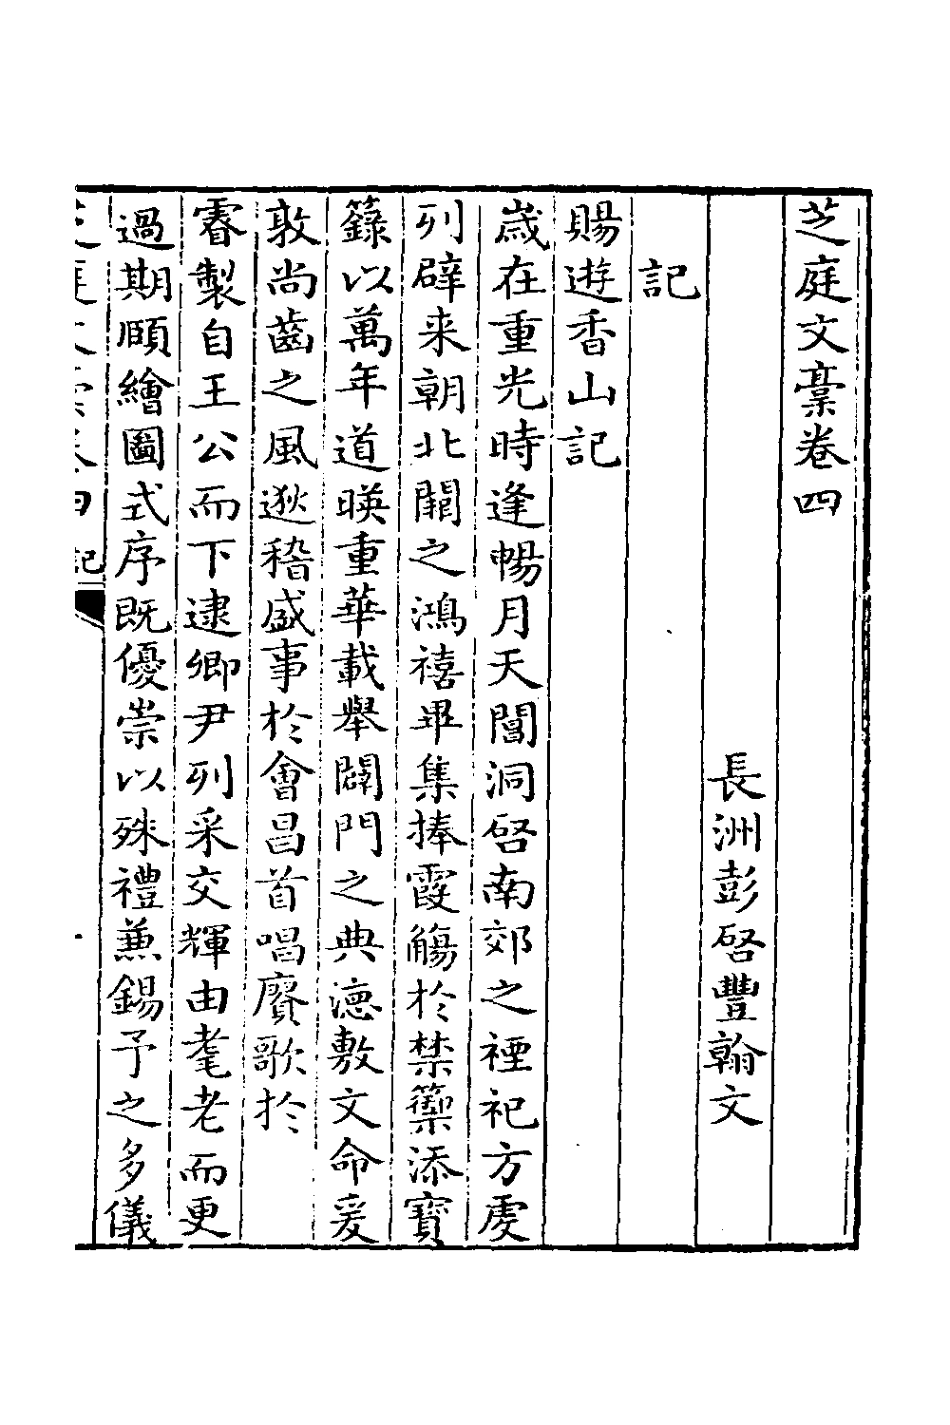 芝庭文稾卷四
長洲彭啓豐翰文
記
賜遊香山記
歳在重光時逢暢月天閶洞啓南郊之禋祀方虔
列辟来朝北闕之鴻禧畢集捧霞觴於禁籞添寶
籙以萬年道暎重華載舉闢門之典徳敷文命爰
敦尚齒之風逖稽盛事於會昌首唱賡歌於
睿製自王公而下逮卿尹列采交輝由耄老而更
過期頤繪圖式序既優崇以殊禮兼錫予之多儀
芝庭文稾卷四 記 一